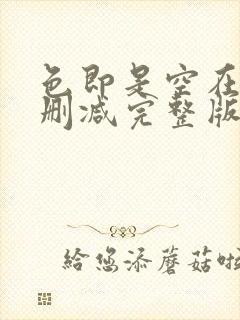 色即是空在
删减完整版
给您添蘑菇啦